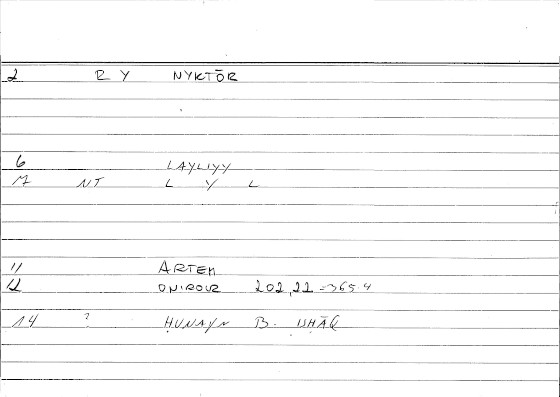 2 R Y NYKTŌR
6 LAYLIYY
M NT L Y L
11 ARTEM
12 ONIROCR 202,22 = 365.4
14 ? ḤUNAYN B. ISḤĀQ